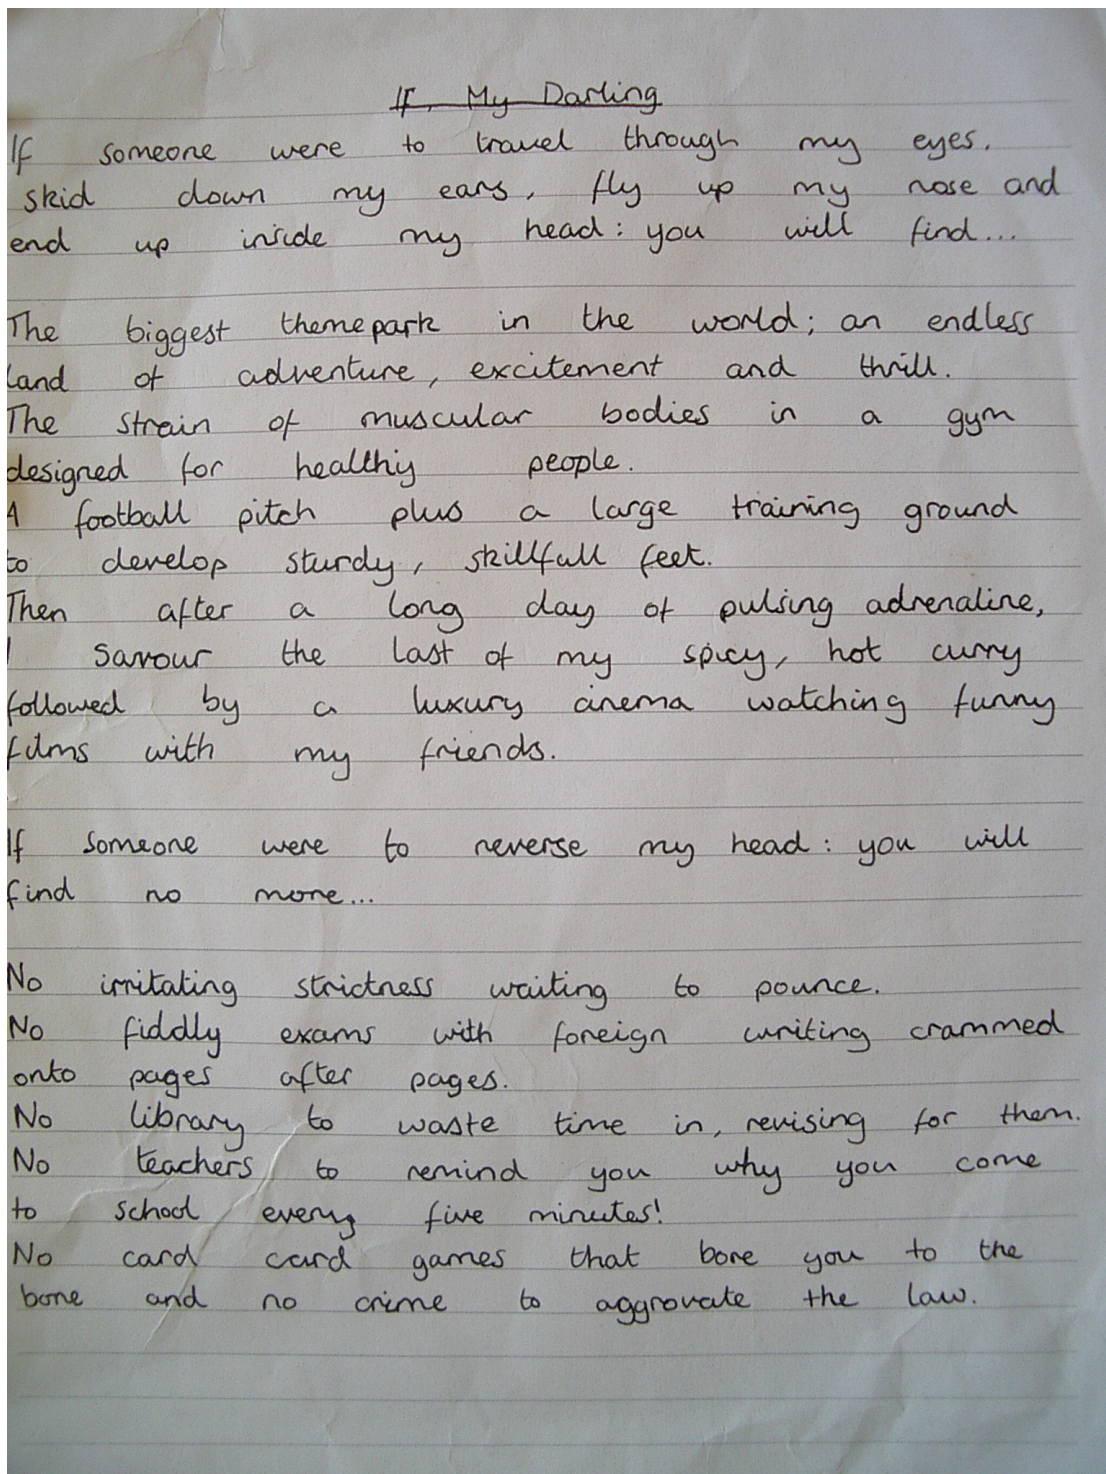 If, My Darling
If someone were to travel through my eyes.
skid down my ears, fly up my nose and
end up inside my head: you will find...
The biggest themepark in the world; an endless
land of adventure, excitement and thrill.
The strain of muscular bodies in a gym
designed for healthy people.
A football pitch plus a large training ground
to develop sturdy, skillfull feet.
Then after a long day of pulsing adrenaline,
I savour the last of my spicy, hot curry
followed by a luxury cinema watching funny
films with my friends.
If someone were to reverse my head: you will
find no more...
No irritating strictness waiting to pounce.
No fiddly exams with foreign writing crammed
onto pages after pages.
No library to waste time in, revising for them.
No teachers to remind you why you come
to school every five minutes!
No card card games that bore you to the
bone and no crime to aggrovate the law.